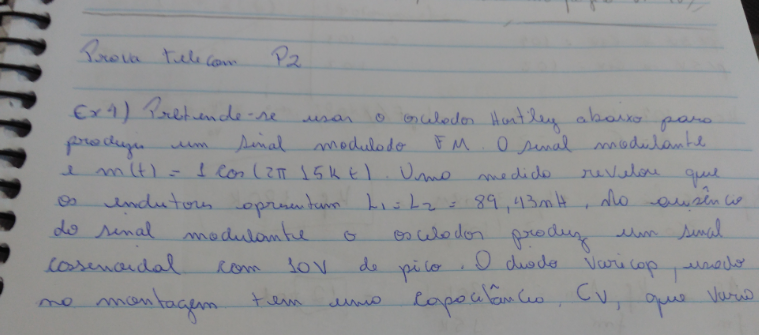 Prova telecom P2
Ex 1) Pretende-se usar o oscilador Hartley abaixo para
produzir um sinal modulado FM. O sinal modulante
é m(t) = 1 cos (2π 15k t). Uma medida revelou que
os indutores apresentam L1 = L2 = 89,43mH. Na ausência
do sinal modulante o oscilador produz um sinal
cossenoidal com 10V de pico. O diodo varicap, usado
na montagem tem uma capacitância, CV, que varia